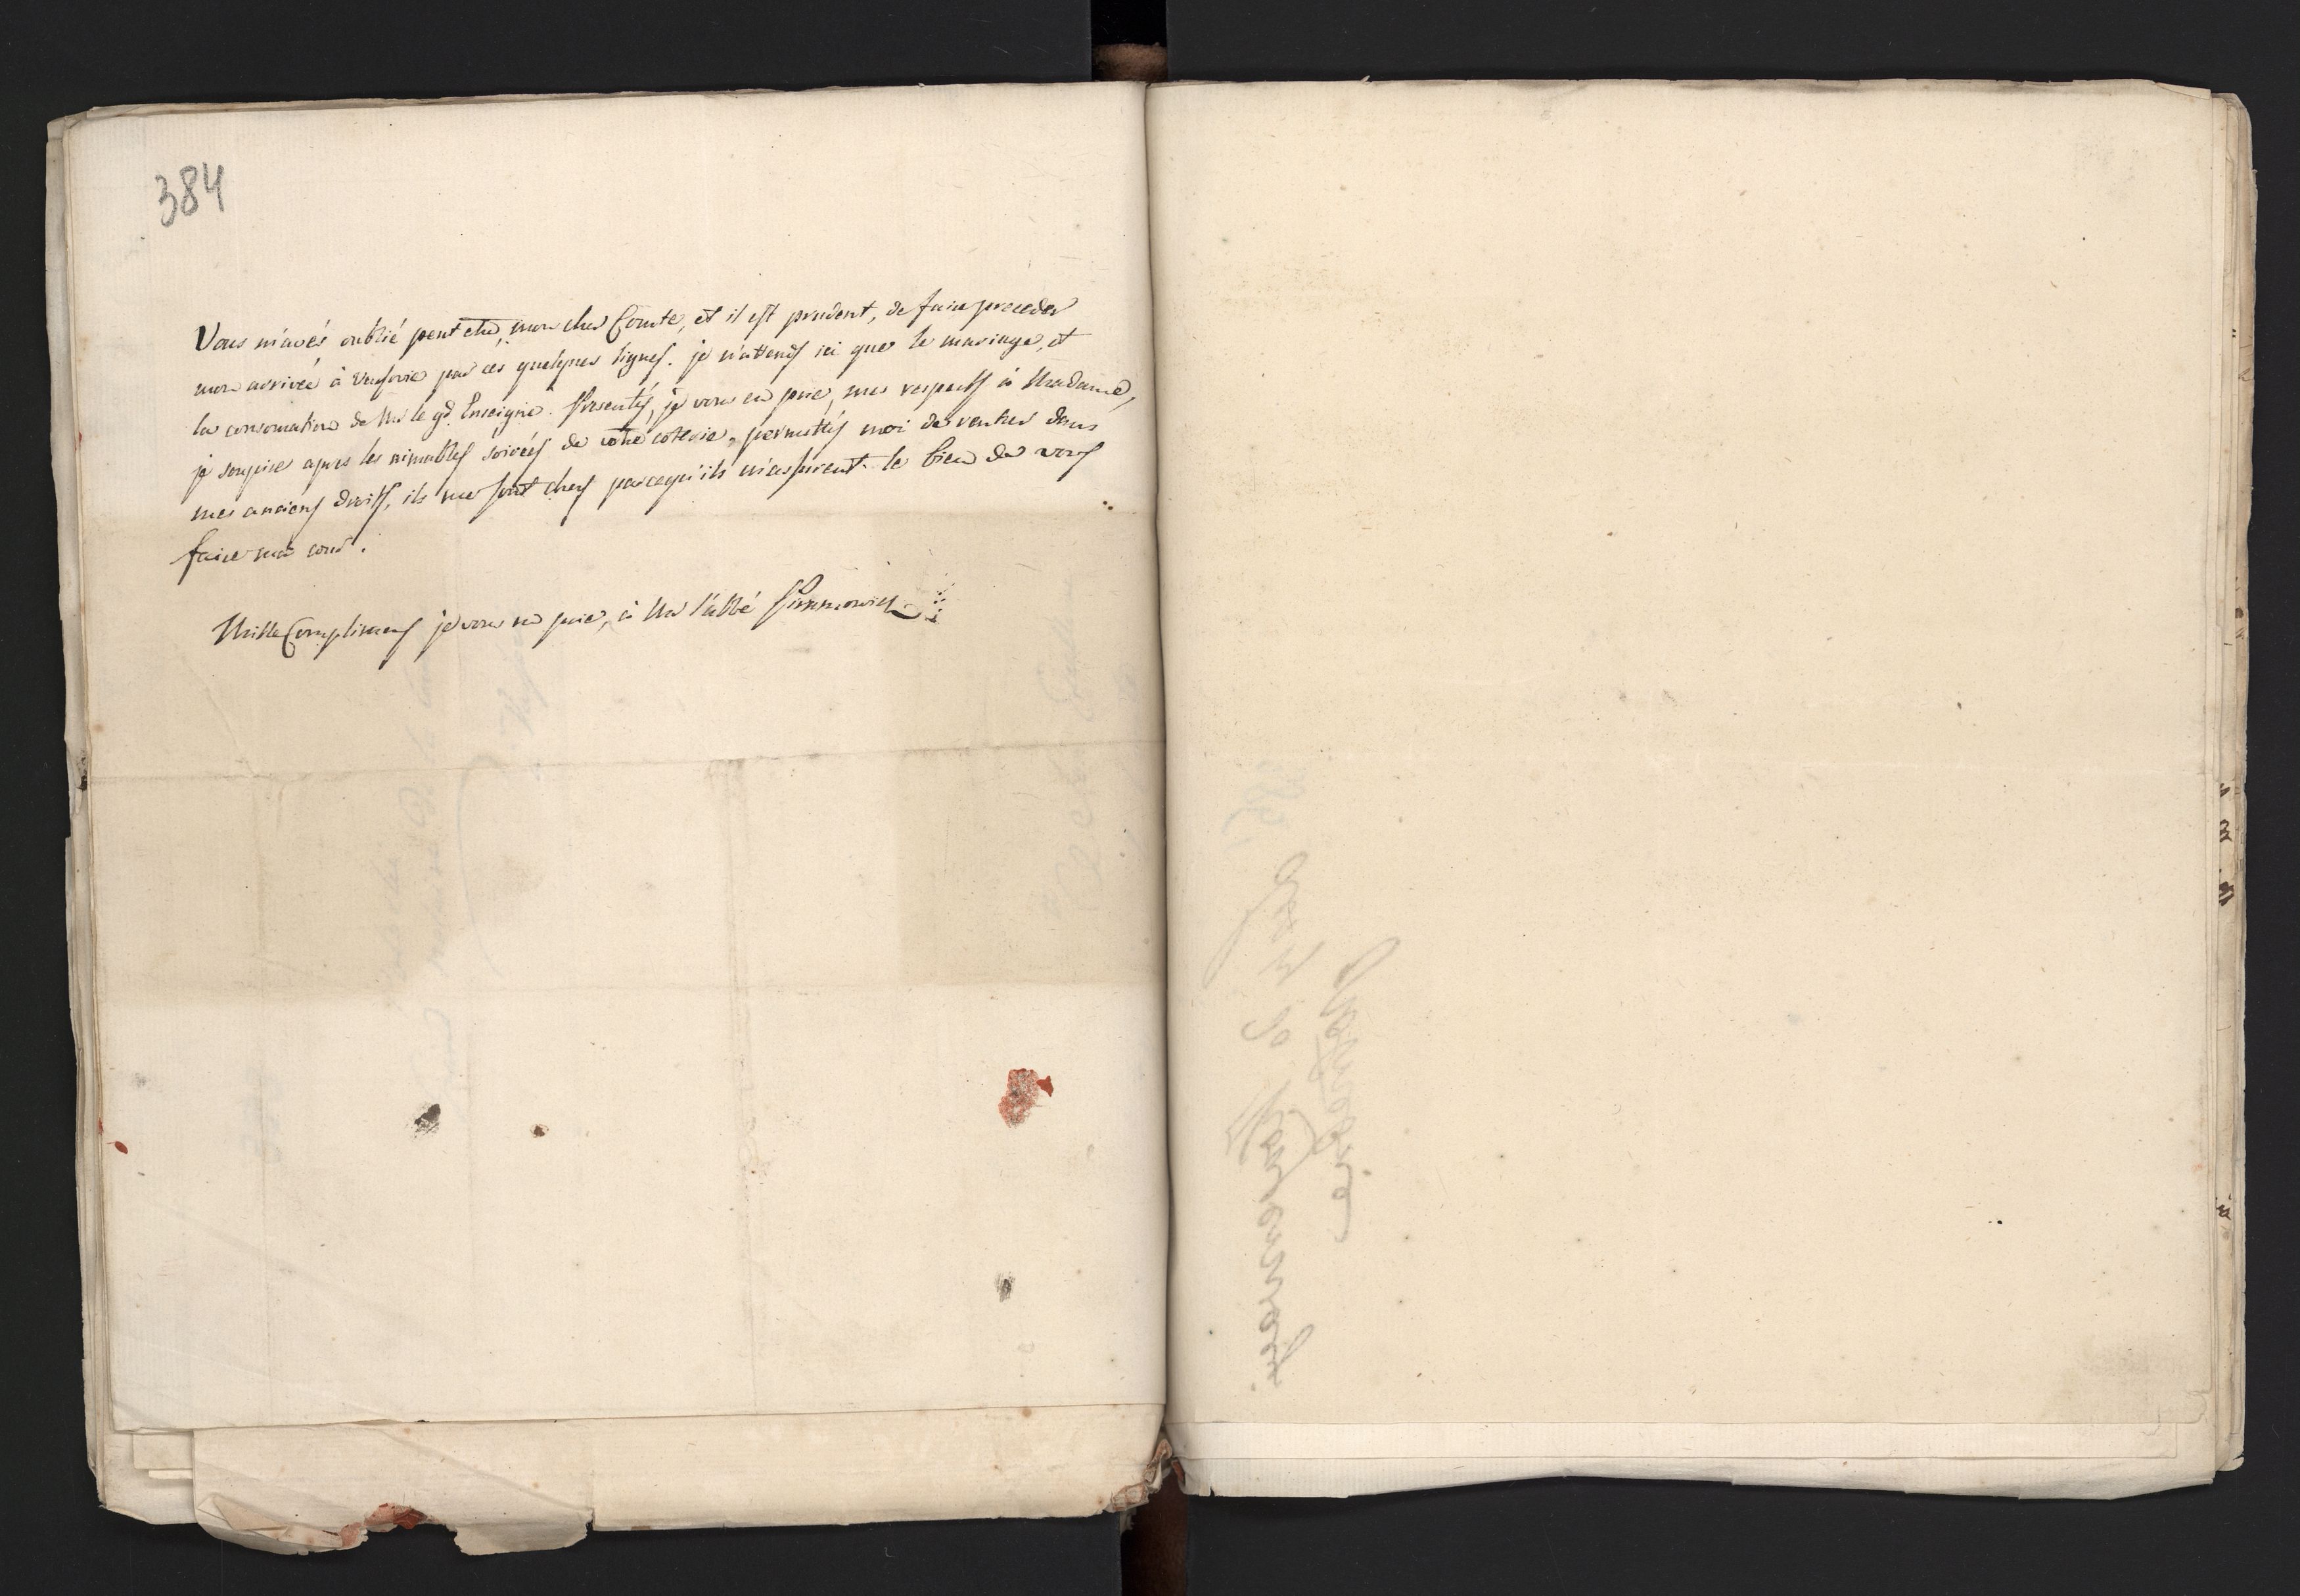 384
Vous m'avés oublié peut etre, mon cher Comte, et il est prudent, de faire preceder
mon arrivée à Varsovie par ces quelques lignes. je n'attends ici que le mariage, et
la consomation de Mr le gd. Enseigne. Presentés, je vous en prie, mes respects à Madame,
je soupire apres les aimables soirées de votre coterie, permettés moi de rentrer dans
mes anciens droits, ils me sont chers parcequ'ils m'assurent le bien de vous
faire ma cour.
Mille Complimens je vous en prie, à Mr l'abbé